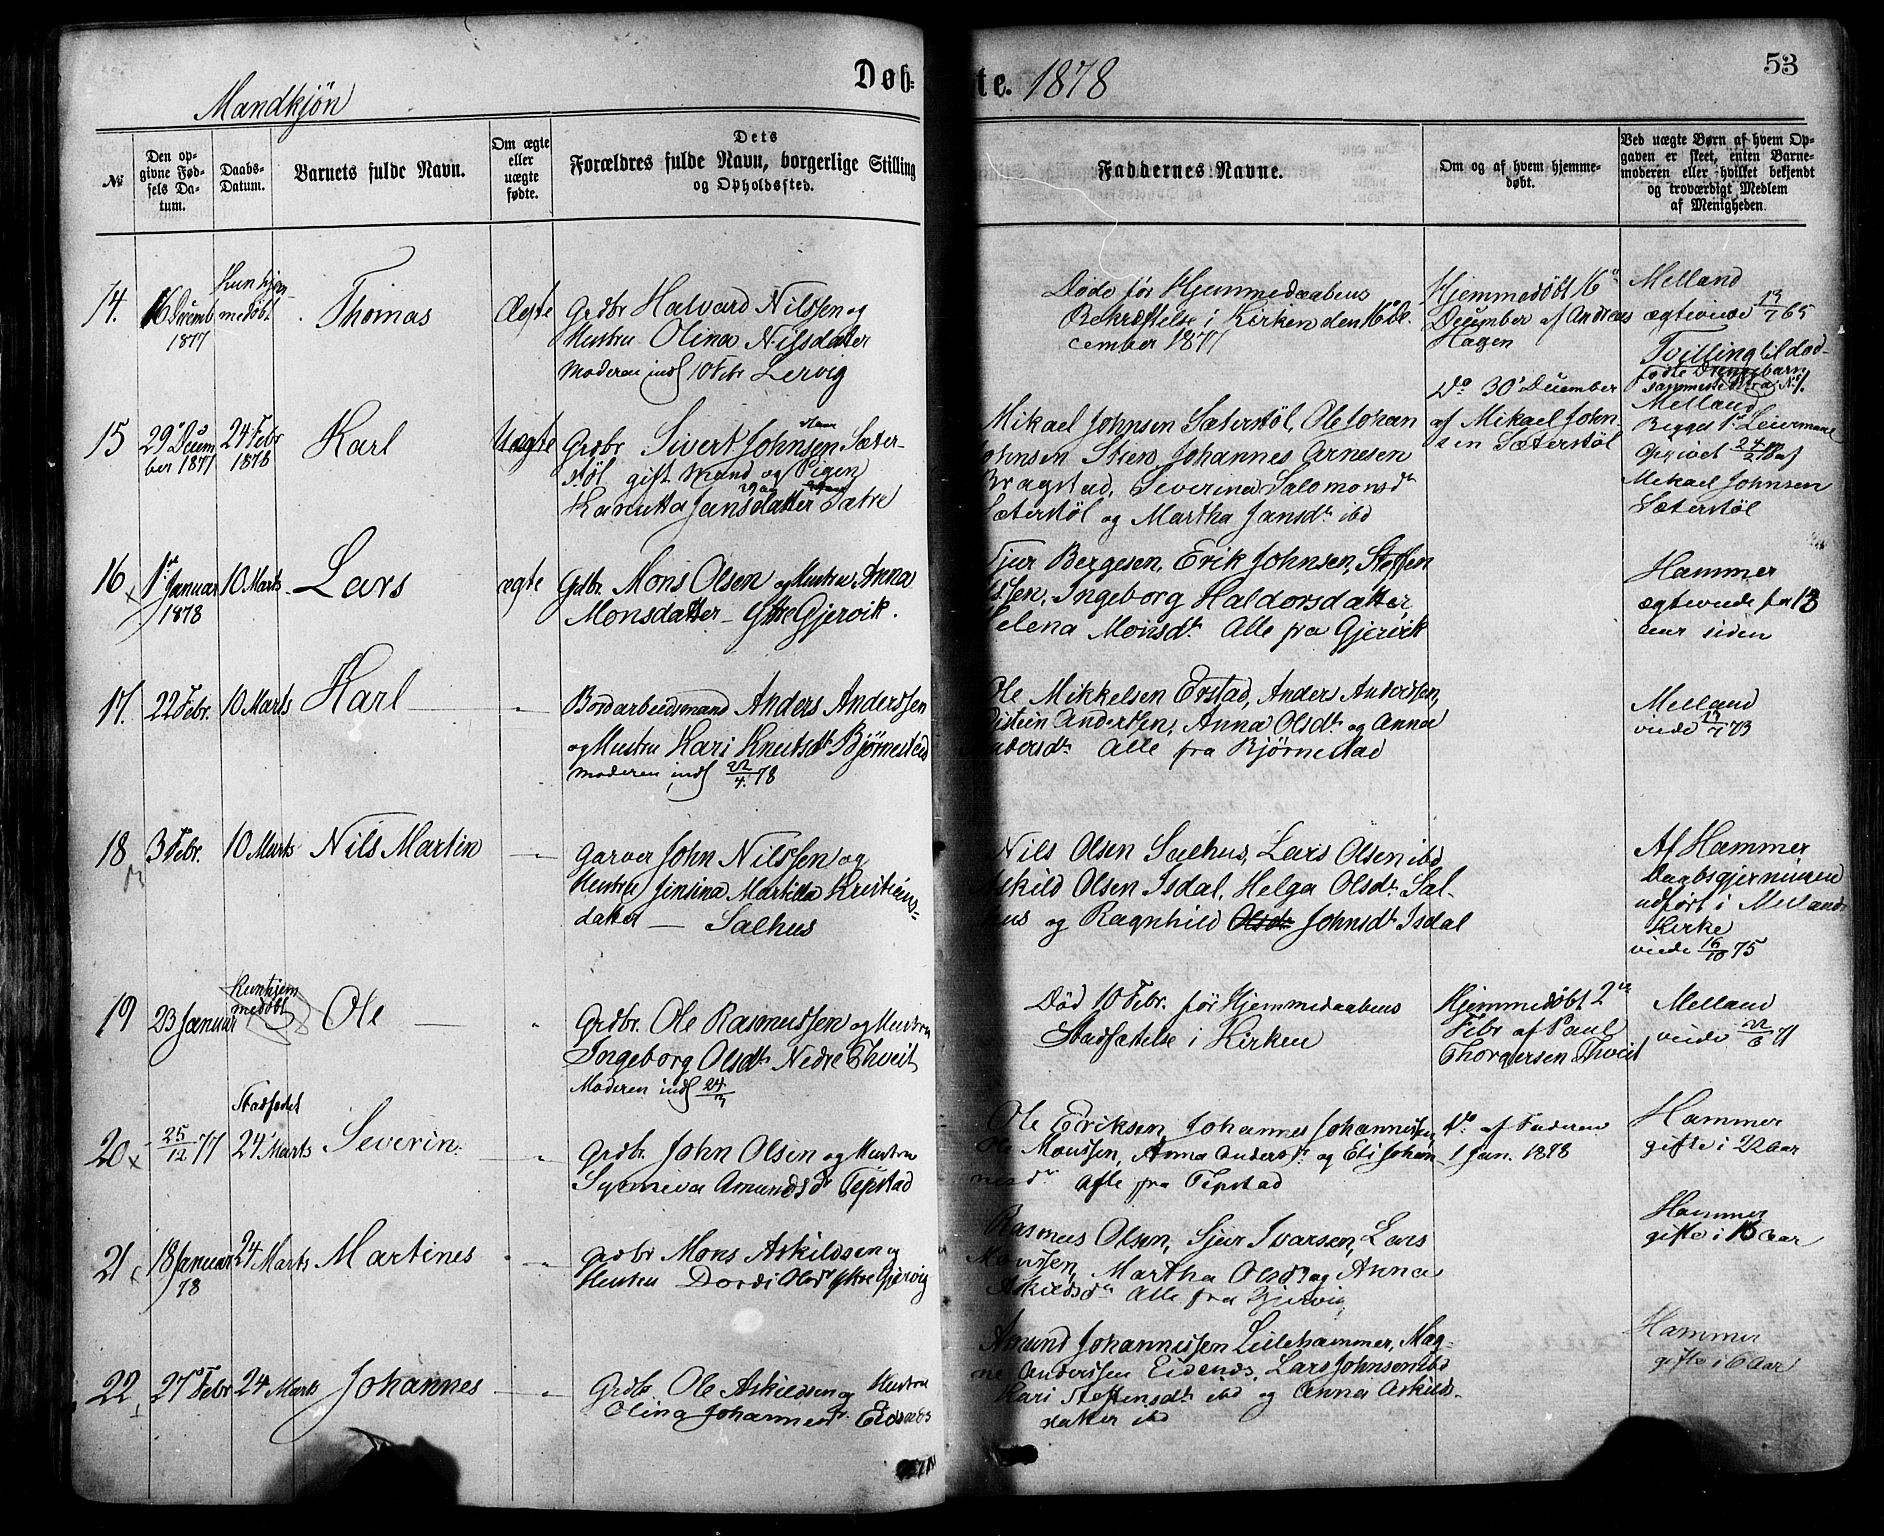 53
Døb-te. 1878
Mandkjøn
№
Den op-
givne Fød-
sels Da-
tum.
Daabs-
Datum.
Barnets fulde Navn.
Om ægte
eller
uægte
fødte.
Dets
Forældres fulde Navn, borgerlige Stilling
og Opholdssted.
Faddernes Navne.
Om og af hvem hjemme-
døbt.
Ved uægte Børn af hvem Op-
gaven er skeet, enten Barne-
moderen eller hvilket bekjendt
og troværdigt Medlem
af Menigheden.
14.
16 Decmb
1877
Kun hjem-
medøbt
Thomas
Ægte
Grdbr Halvard Nilssen og
Hustru Olina Nilsdatter
Moderen indl 10 Febr Lervig
Døde før Hjemmedaabens
Bekræftelse i Kirken den 16 De-
cember 1877
Hjemmedøbt 16
December af Andreas
Hagen
Melland
ægteviede 13/7 65
Tvilling til død-
fødte Drengebarn
15
29 Decem
ber 1877
24 Febr
1878
Karl
Uægte
Grdbr Sivert Johnsen Sæter-
støl gift Mand og Pigen
Jansdatter Sætre
Mikael Johnsen Sæterstøl, Ole Johan
Johnsen Steen, Johannes Arnesen
Bragstad, Severina Salomonsdr
Sæterstøl og Martha Jansdr ibd
Do 30 December
af Mikael John
sen Sæterstøl
Melland
Begges 1 Leiermaal
Opgivet 24/2 af
Mikael Johnsen
Sæterstøl
16
1ste Januar
1878
10 Marts
Lars
ægte
Gdbr. Mons Olsen og Hustru Anna
Monsdatter - Gjervik.
Sjur Bergesen, Erik Johnsen, Steffen
Ingeborg Haldorsdatter,
Helena Monsdr Alle fra Gjervik
Hammer
ægteviede for 13
aar siden
17.
22 Febr.
10 Marts
Karl
"
Bordarbeidsmand Anders Anderssen
og Hustru Kari Knutsdr Bjørnestad
Moderen indl 22/4 78
Ole Mikkelsen Erstad, Anders Anderssen,
Anderssen, Anna Olsdr og Anna
Andersdr Alle fra Bjørnestad
Melland
viede 73
18
3 Febr.
10 Marts
Nils Martin
"
Garver John Nilssen og
Hustru Jensina Martilda Kristians-
datter - Salhus
Nils Olsen Salhus, Lars Olsen ibd
Askild Olsen Isdal, Helga Olsdr Sal-
hus og Ragnhild Olsdr Johnsdr Isdal
Af Hammer
Daabsgjerningen
udført i Mellands
Kirke
viede 16/10 75
19
23 Januar
Kun hjem
medøbt
Ole
"
Grdbr. Ole Rasmussen og Hustru
Ingeborg Olsdr Nedre Thveit
Moderen indl 24/3
Død 10 Febr. før Hjemmedaabens
Stadfæstelse i Kirken
Hjemmedøbt 2
Febr af Paul
Thorgersen Thveit
Melland
viede 22/6 71
20
25/12 77
Stadfæstet
24 Marts
Severin
"
Grdbr. John Olsen og Hustru
Synneva Amundsdr Tepstad
Ole Eriksen, Johannes Johannessen,
Ole Monssen, Anna Andersdr og Eli Johan-
nesdr Alle fra Tepstad
Do af Faderen
1 Jan. 1878
Hammer
gifte i 22 Aar
21
18 Januar
78
24 Marts
Martines
"
Grdbr Mons Askildsen og
Hustru Dordi Olsdr Gjervig
Rasmus Olsen, Sjur Ivarsen, Lars
Monssen, Martha Olsdr og Anna
Askildsdr Alle fra Gjervig
Hammer
gifte i 16 Aar
22
27 Febr
24 Marts
Johannes
"
Grdbr. Ole Askildsen og Hustru
Olina Johannesdr Eidsnes
Amund Johannessen Lillehammer, Mag-
ne Anderssen Eidsnes, Lars Johnsen ibd
Kari Steffensdr ibd og Anna Askilds-
datter ibd
Hammer
gifte i 6 Aar